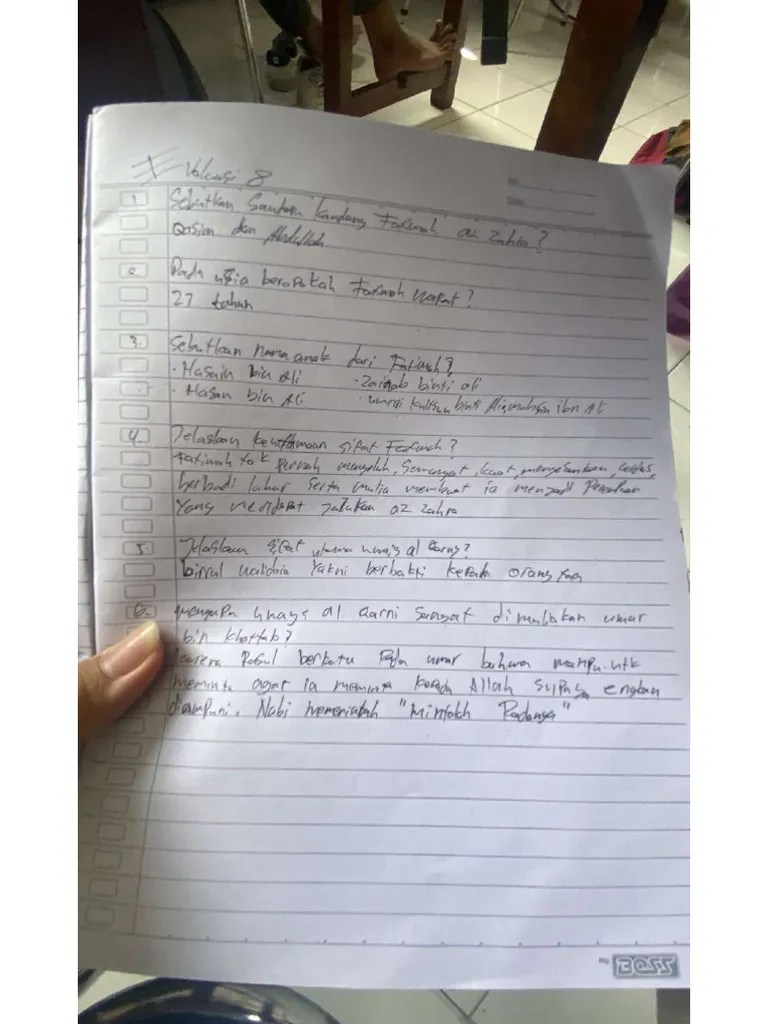 Evaluasi 8
No.
Date.
1 Sebutkan Saudara kandung Fatimah az Zahra?
Qasim dan Abdullah
2 Pada usia berapakah Fatimah wafat?
27 tahun
3. Sebutkan nama anak dari Fatimah?
· Hasain bin Ali · Zainab binti ali
· Hasan bin Ali · ummi kultsum binti
4. Jelaskan keutamaan sifat Fatimah?
Fatimah tak pernah mengeluh, Semangat, kuat,
berbudi luhur serta mulia membuat ia menjadi Perempuan
Yang mendapat julukan az Zahra
5. Jelaskan sifat utama uwais al Qarny?
birrul walidain Yakni berbakti kepada orang tua
6. mengapa Uways al Qarni Sangat dimuliakan umar
bin khattab?
karena Rasul berkata Pada umar bahwa mampu utk
meminta agar ia meminta kepada Allah supaya engkau
diampuni. Nabi memerintah "Mintalah Padanya"
BOSS